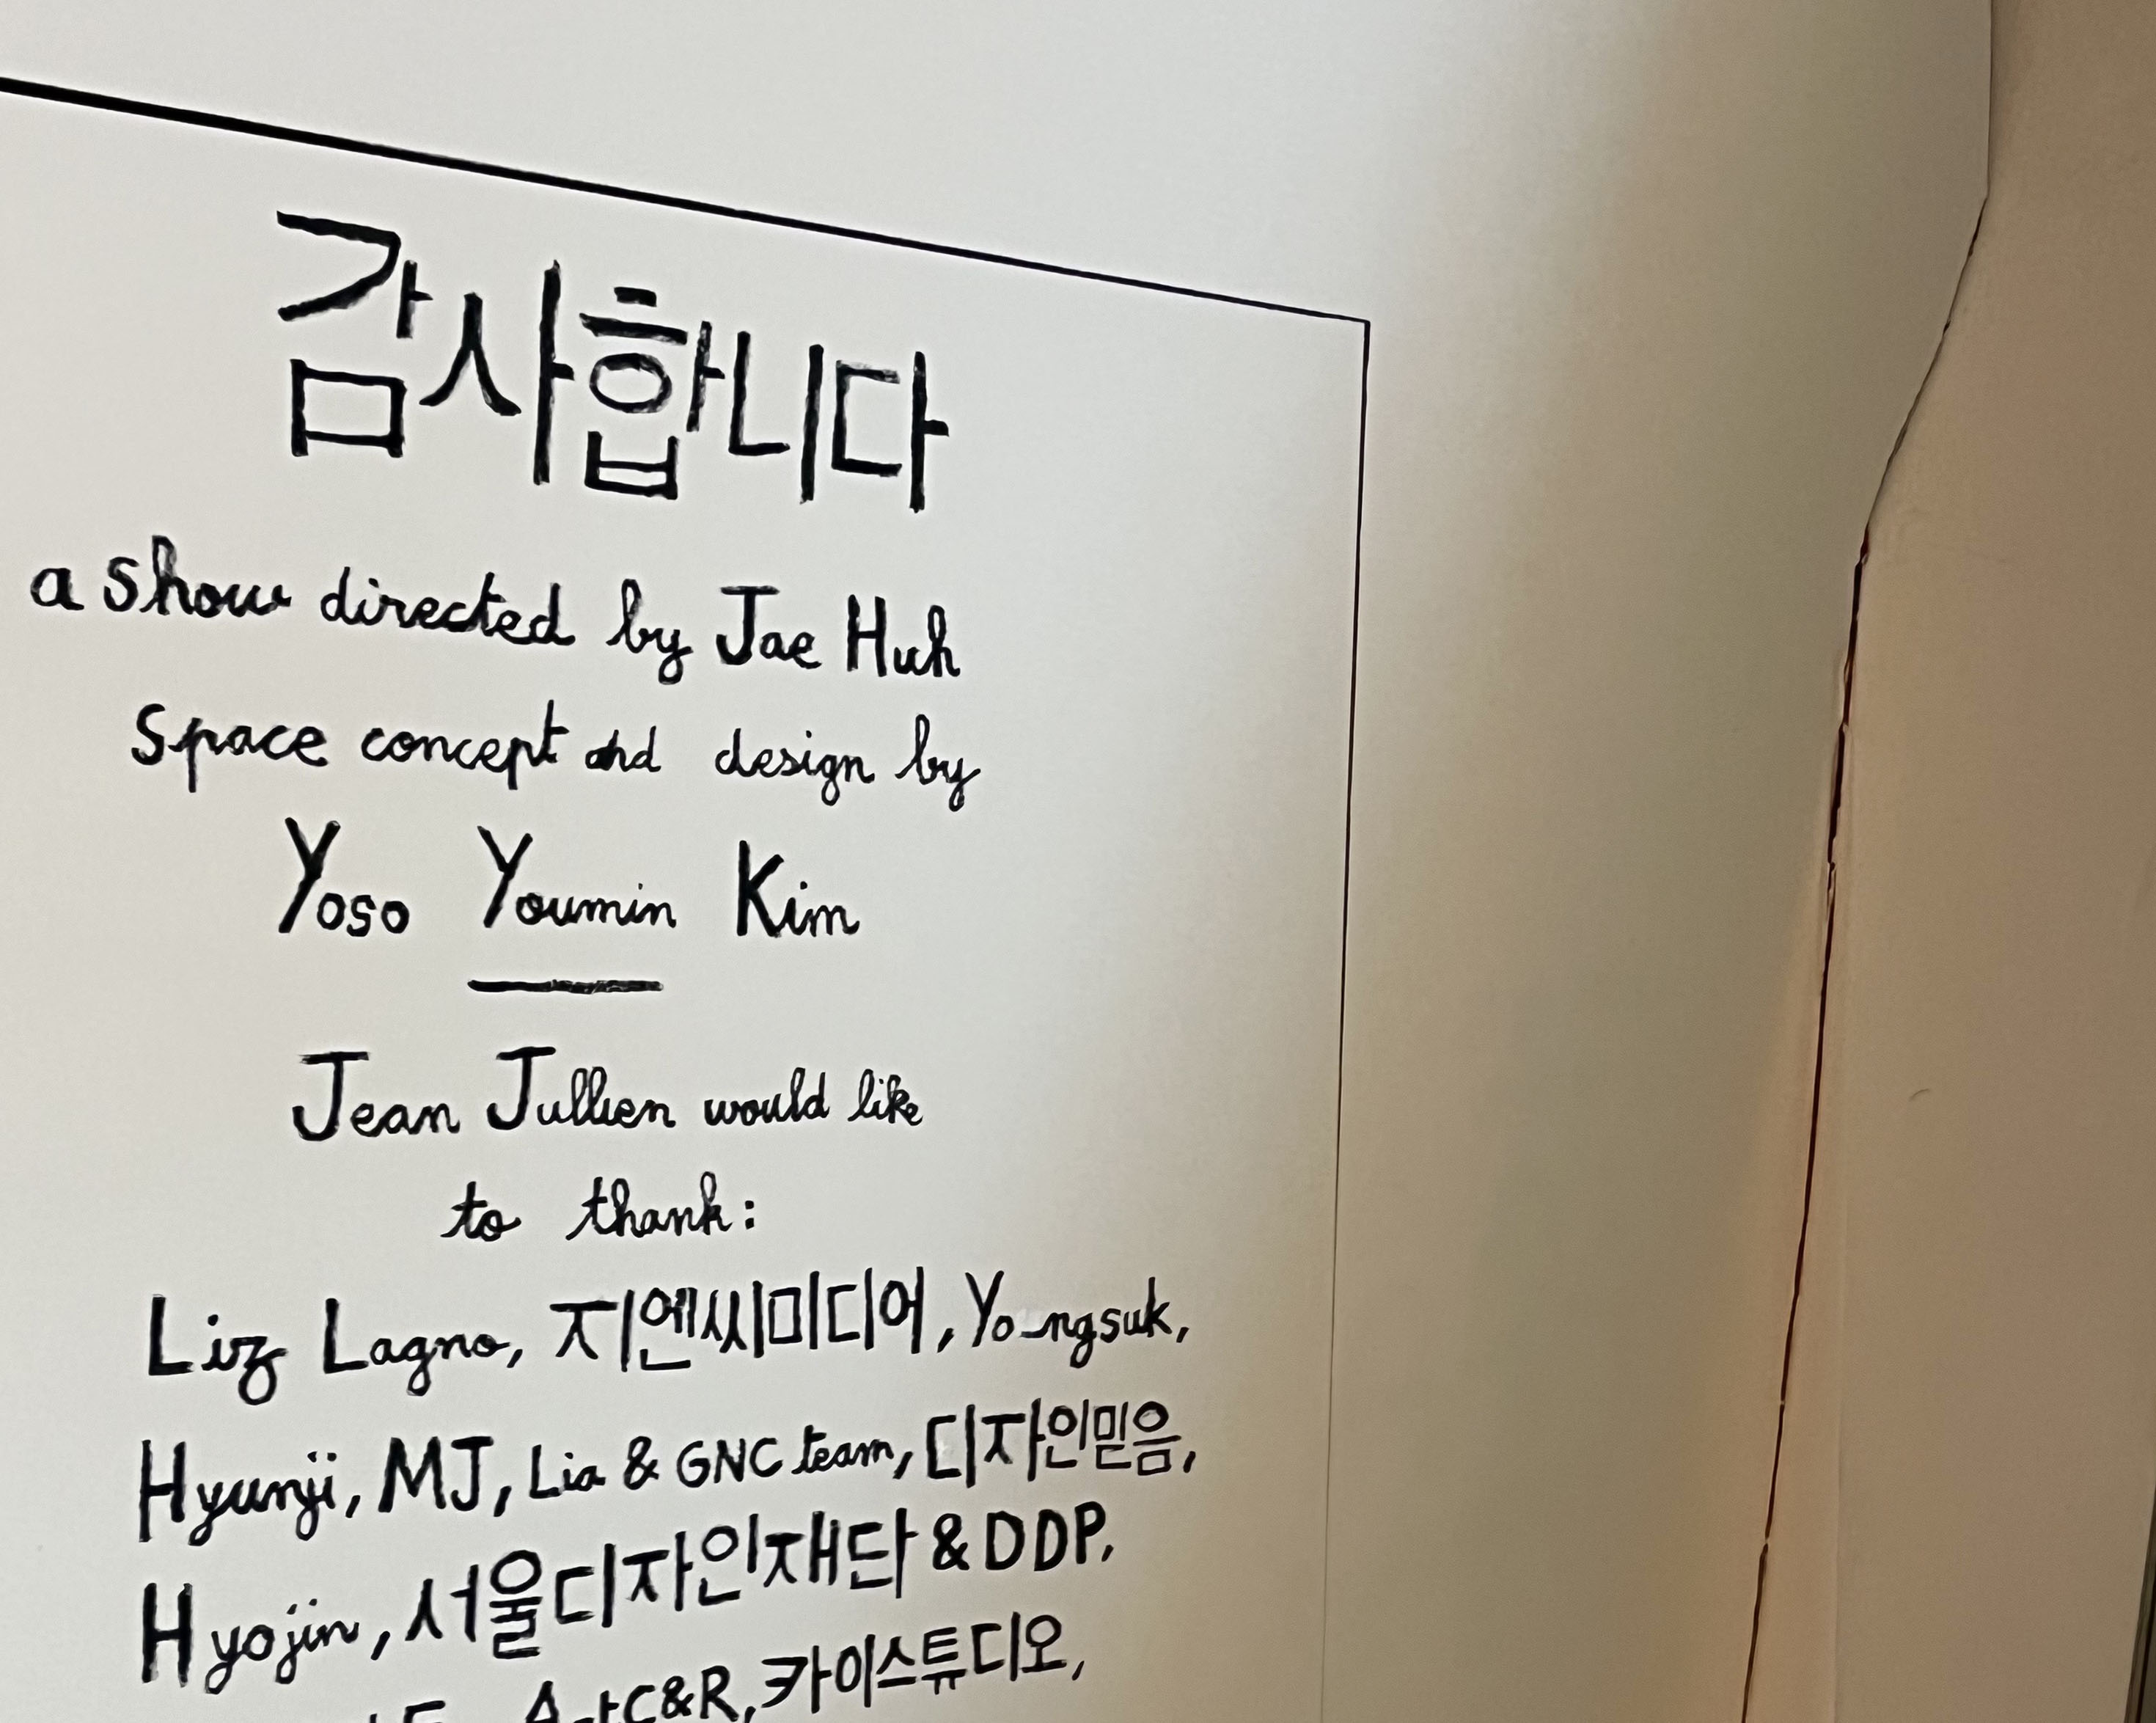 감사합니다
a show directed by Jae Huh
Space concept and design by
Yoso Youmin Kim
Jean Jullien would like
to thank:
Liz Lagno, 지엔씨미디어, Yo_ngsuk,
Hyunji, MJ, Lia & GNC team, 디자인믿음,
Hyojin, 서울디자인재단 & DDP,
C&R, 카이스튜디오,